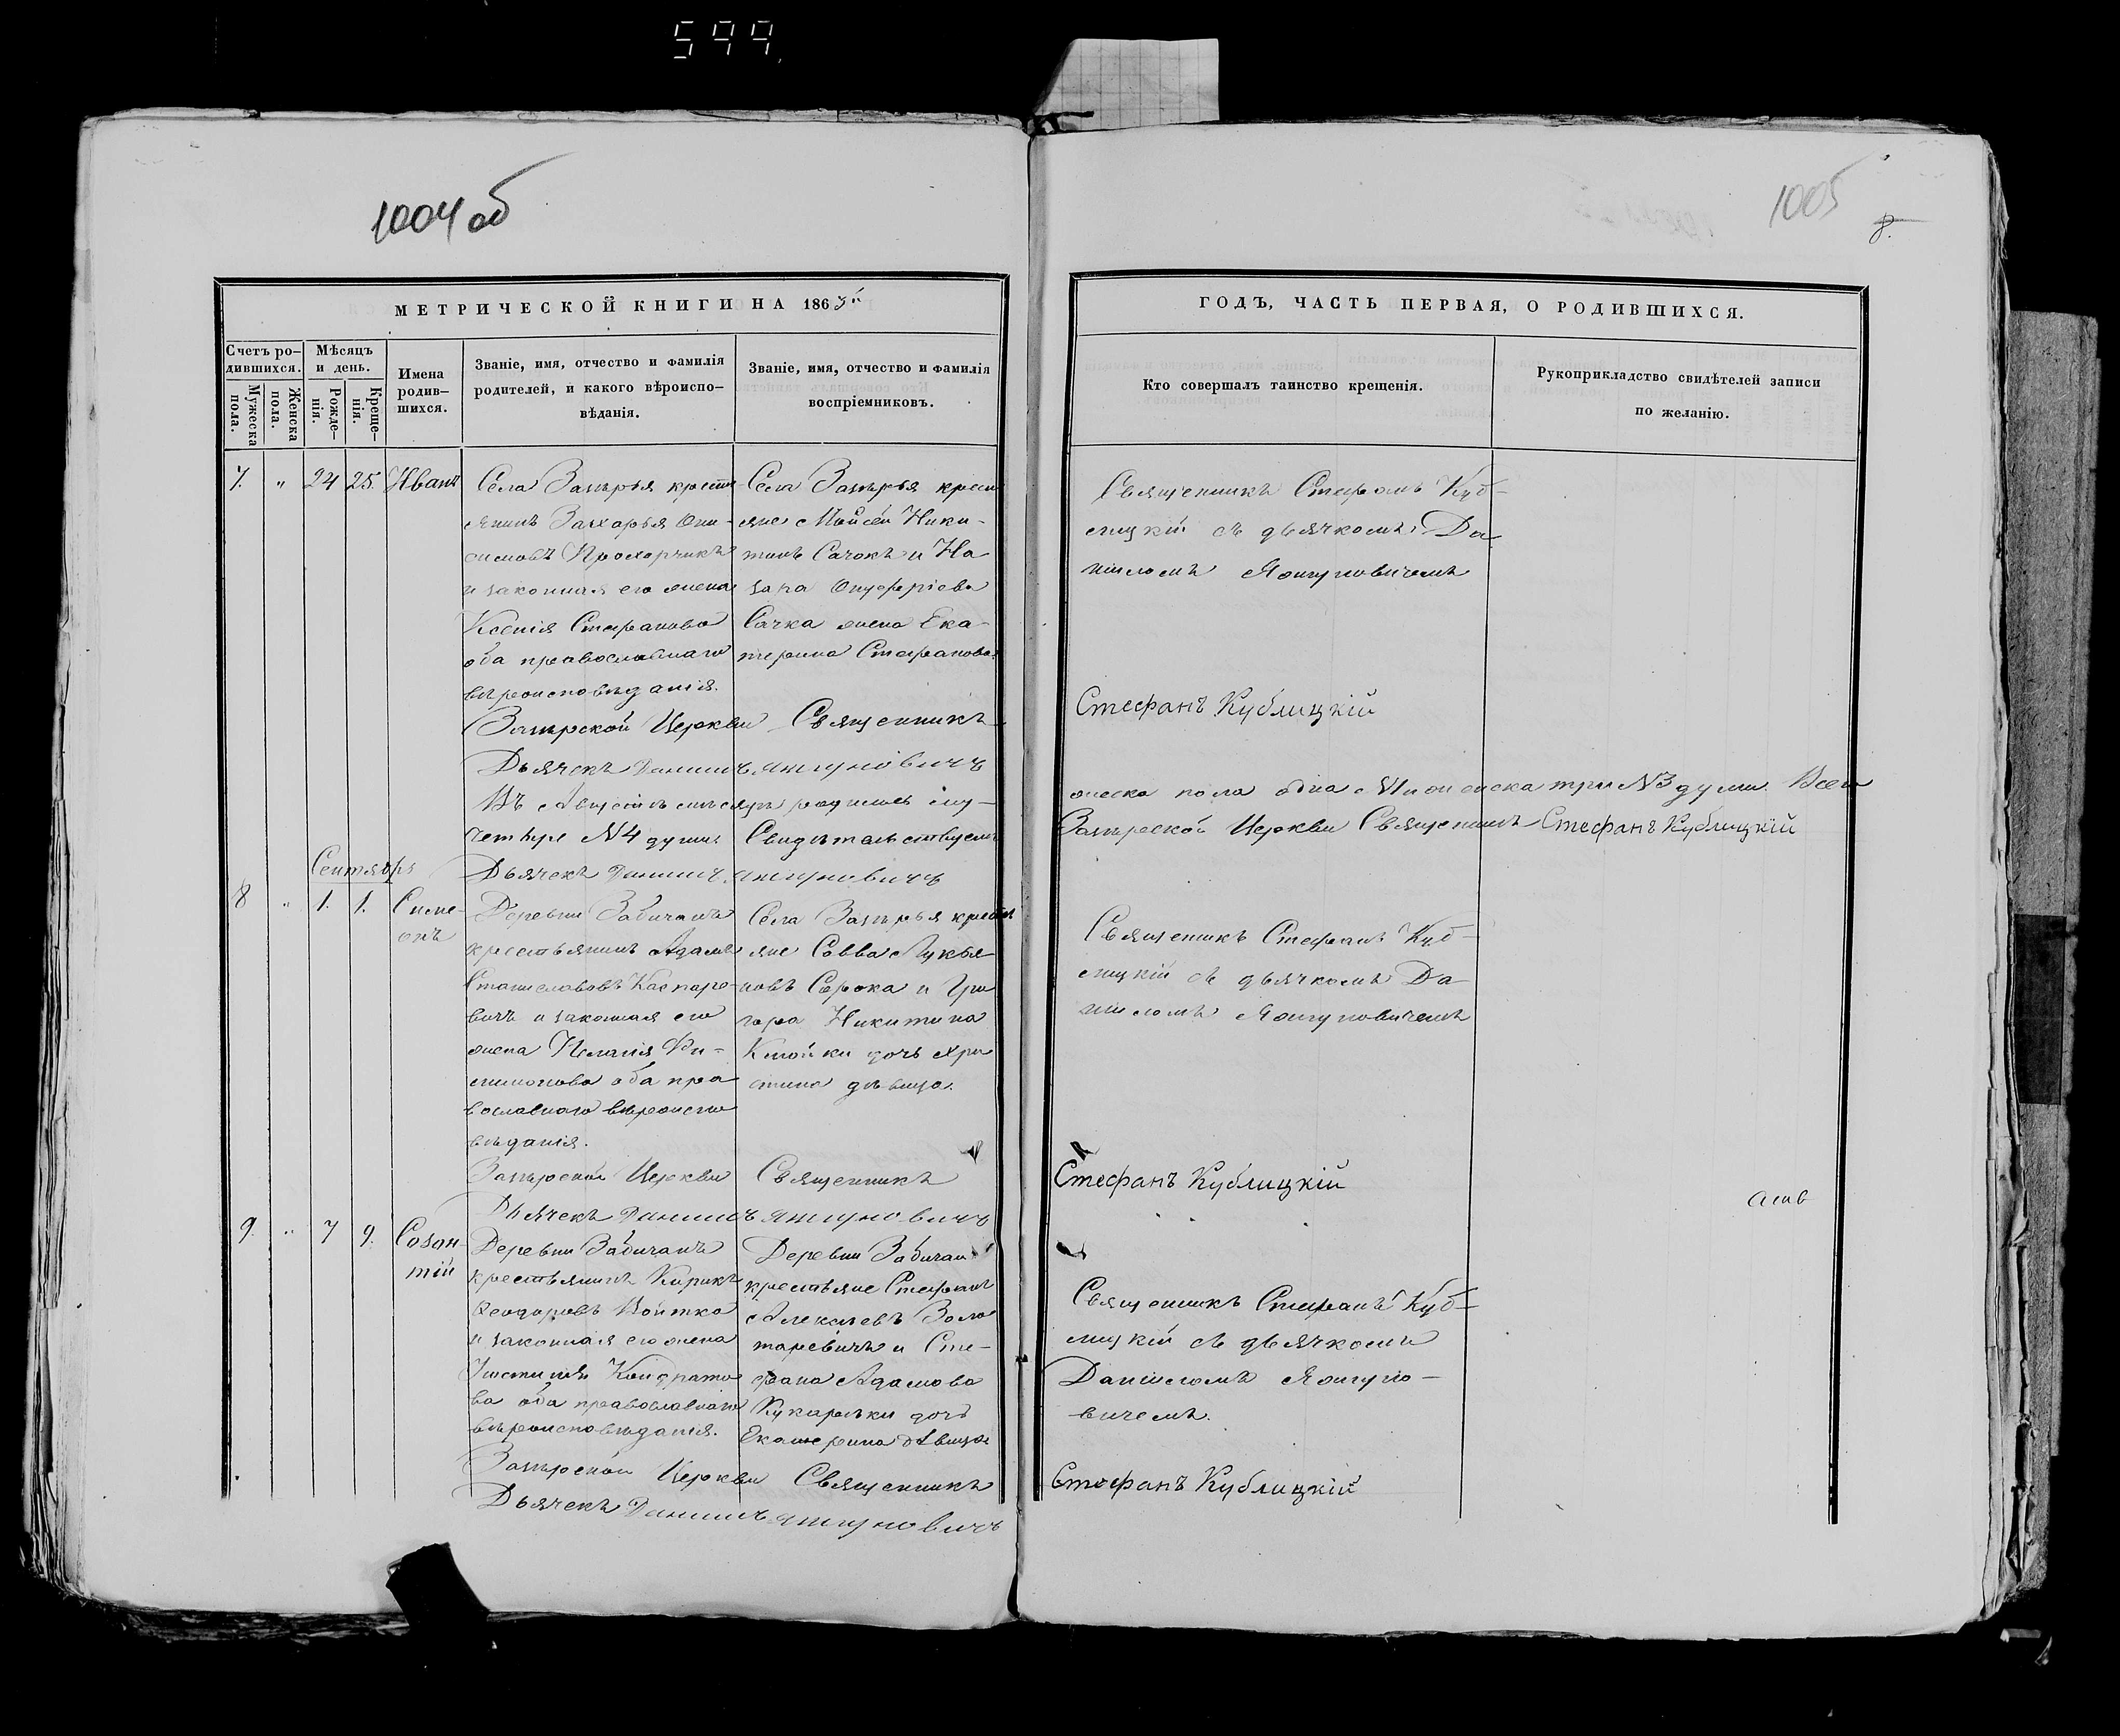 599
1004 об
1005
8.
МЕТРИЧЕСКОЙ КНИГИ НА 1863й
ГОДЪ, ЧАСТЬ ПЕРВАЯ, О РОДИВШИХСЯ.
Счетъ ро-
дившихся.
Мужеска
пола.
Женска
пола.
Мѣсяцъ
и день.
Рожде-
нія.
Креще-
нія.
Имена
родив-
шихся.
Званіе, имя, отчество и фамилія
родителей, и какого вѣроиспо-
вѣданія.
Званіе, имя, отчество и фамилія
воспріемниковъ.
Кто совершалъ таинство крещенія.
Рукоприкладство свидѣтелей записи
по желанію.
7. " 24 25. Иванъ
Села Замѣрья крестья
янинъ Захарья Они-
симовъ Прохорчикъ
и законная его жена
Ксенія Стефанова
оба православнаго
вѣроисповѣданія.
Села Замѣрья крест
яне Мойсей Ники-
тинъ Сачокъ и На
зара Онуфріева
Сачка жена Ека-
терина Стефанова.
Священникъ Стефанъ Куб-
лицкій съ дьячкомъ Да
ніиломъ Янчуковичемъ
Замѣрской Церкви Священникъ
Стефанъ Кублицкій
Дьячекъ Даніилъ
Въ Августѣ мѣсяцѣ родилось му-
жеска пола одна №1 и женска три №3 души. Всего
четыре №4 души. Свидѣтельствуемъ
Замѣрской Церкви Священникъ Стефанъ Кублицкій
Дьячекъ Даніилъ
Сентябрь
8 " 1. 1. Симе-
онъ
Деревни Забичанъ
крестьянинъ Адамъ
Станиславовъ Каспаро-
вичъ и законная его
жена Пелагія Фи-
лимонова оба пра
вославнаго вѣроиспо
вѣданія.
Села Замѣрья кресть
яне Савва Лукья
новъ Сорока и Гри
гора Никитина
дочь Хри
стина дѣвица.
Священникъ Стефанъ Куб-
лицкій съ дьячкомъ Да-
ніиломъ Янчуковичемъ
Замѣрской Церкви Священникъ
Стефанъ Кублицкій
Дьячекъ Даніилъ
9. " 7 9. Созон-
тій
Деревни Забичанъ
крестьянинъ Кирикъ
Ѳеодоровъ Войтко
и законная его жена
Іустинія Кондрато
ва оба православнаго
вѣроисповѣданія.
Деревни Забичан
крестьяне Стефанъ
Алексѣевъ Золо
таревичъ и Сте-
фана Адамова
дочь
Екатерина дѣвица
Священникъ Стефанъ Куб-
лицкій съ дьячкомъ
Даніиломъ Янчуко-
вичемъ.
Замѣрской Церкви Священникъ
Стефанъ Кублицкій
Дьячекъ Даніилъ